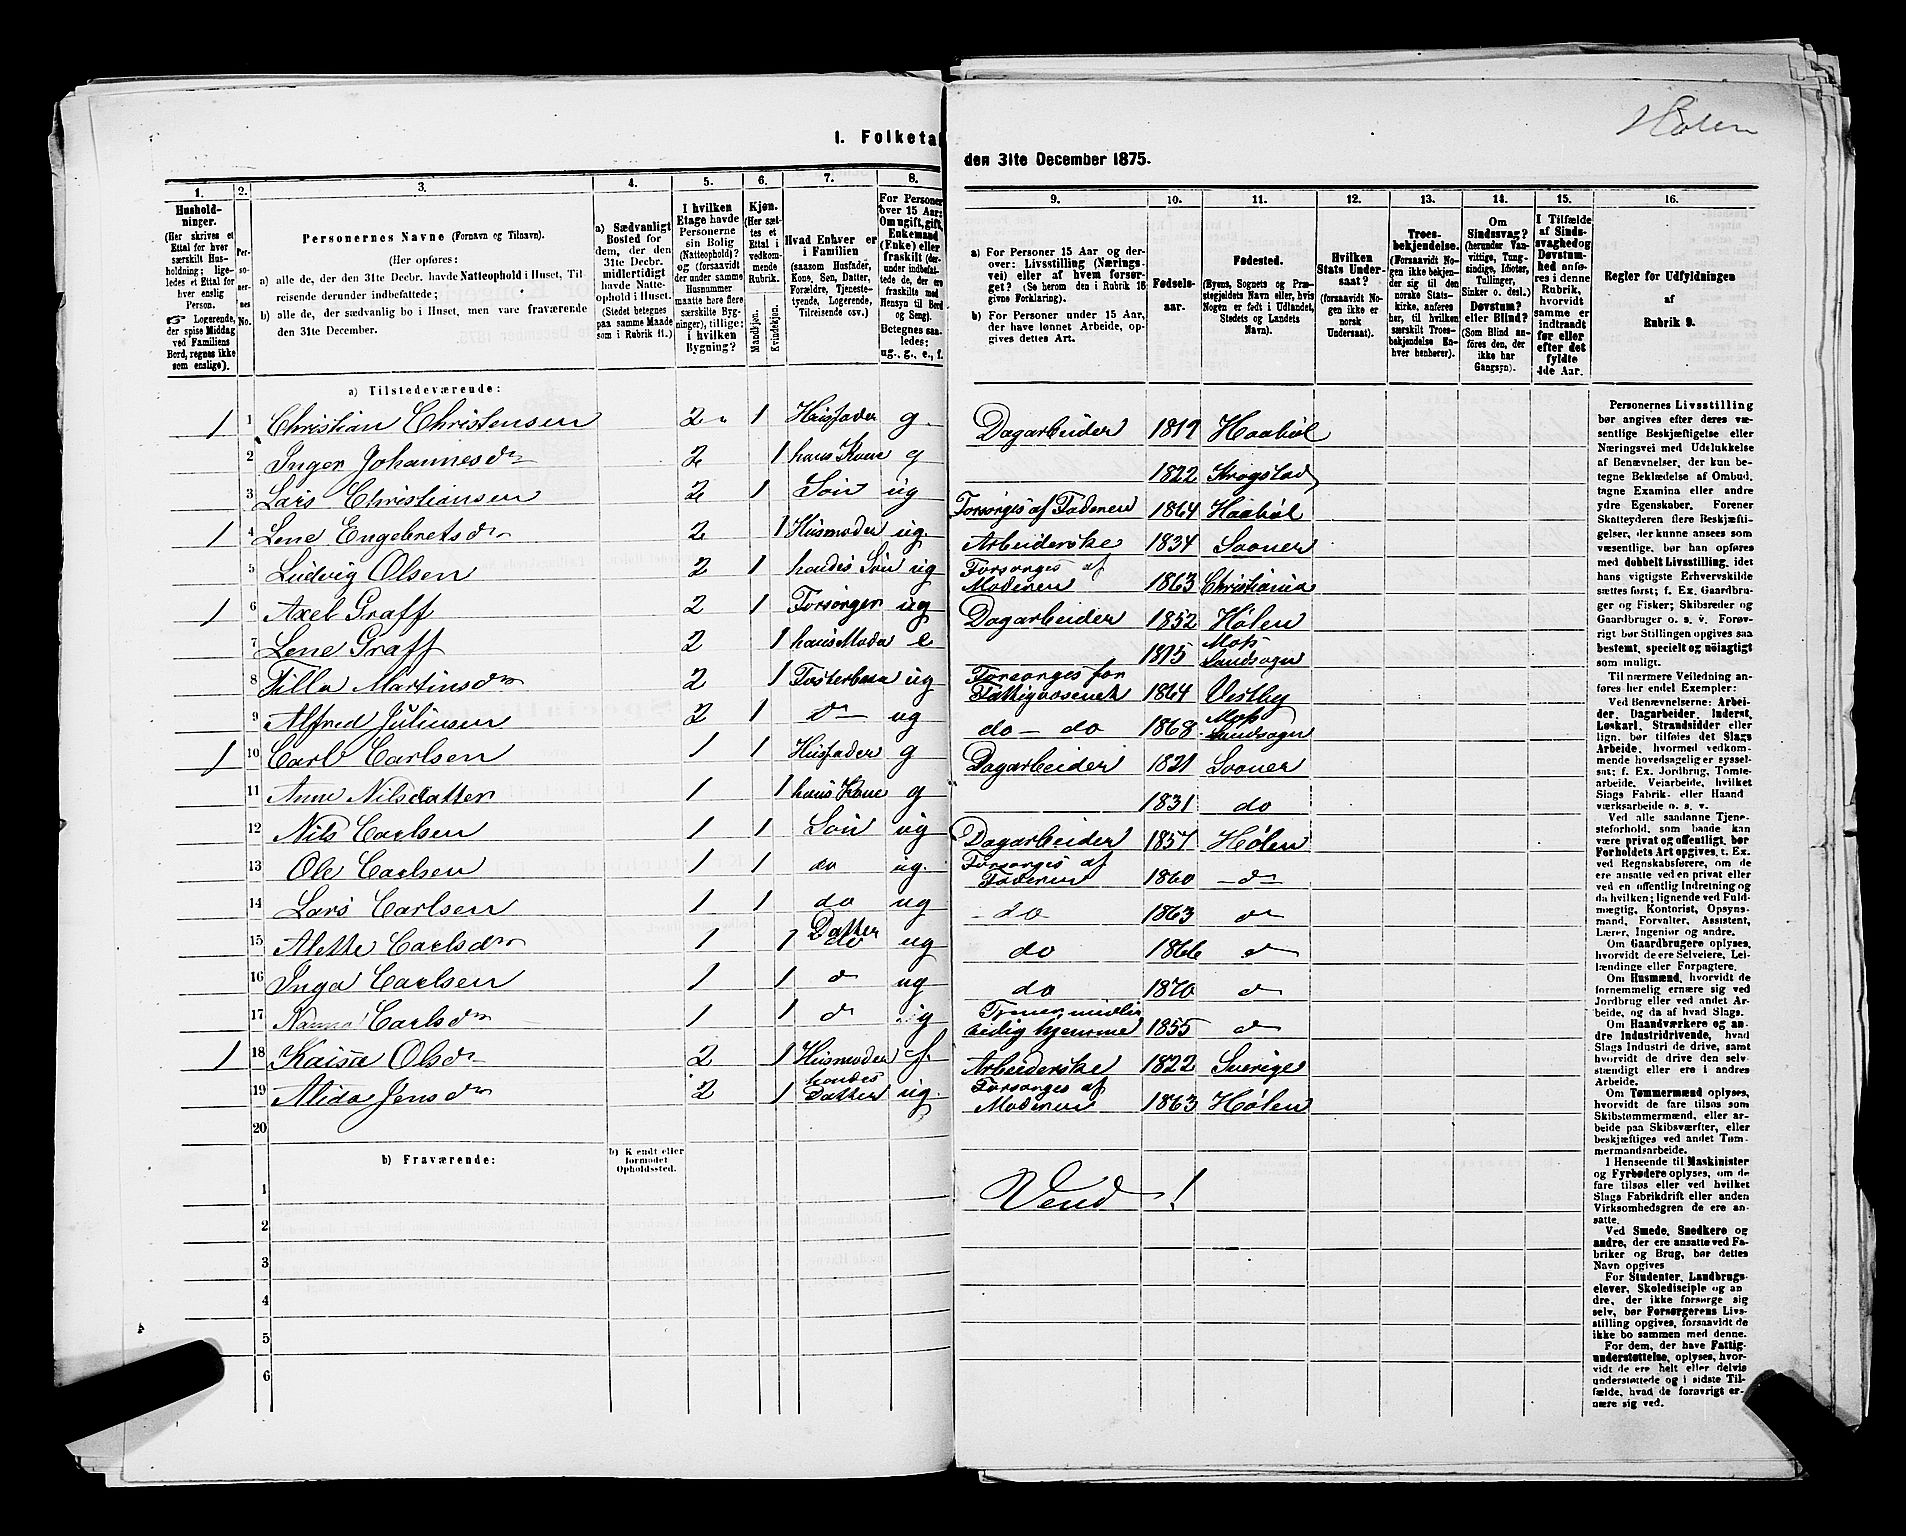 Hølen
I. Folketal
den 31te December 1875.
1.
2.
3.
4.
5.
6.
7.
8.
9.
10.
11.
12.
13.
14.
15.
16.
Hushold-
ninger.
(Her skrives et
Ettal for hver
særskilt Hus-
holdning; lige-
ledes et Ettal for
hver enslig
Person.
☞ Logerende,
der spise Middag
ved Familiens
Bord, regnes ikke
som enslige).
Per-
so-
ner-
nes
No.
Personernes Navne (Fornavn og Tilnavn).
(Her opføres:
a) alle de, der den 31te Decbr. havde Natteophold i Huset, Til-
reisende derunder indbefattede;
b) alle de, der sædvanlig bo i Huset, men vare fraværende
den 31te December.
a) Sædvanligt
Bosted for
dem, der den
31te Decbr.
midlertidigt
havde Natte-
ophold i Huset.
(Stedet betegnes
paa samme Maade
som i Rubrik 11.)
I hvilken
Etage havde
Personerne
sin Bolig
(Natteophold)?
og (forsaavidt
der under samme
Husnummer
maatte høre flere
særskilte Byg-
ninger), tillige:
i hvilken
Bygning?
Kjøn.
(Her sæt-
tes et
Ettal i
vedkom-
mende
Rubrik.
Mandkjøn.
Kvindekjøn.
Hvad Enhver er
i Familien
(saasom Husfader,
Kone, Søn, Datter,
Forældre, Tjeneste-
tyende, Logerende,
Tilreisende osv.)
For Personer
over 15 Aar:
Om ugift, gift,
Enkemand
(Enke) eller
fraskilt (der-
under indbefat-
tede de, der ere
fraskilte med
Hensyn til Bord
og Seng).
Betegnes saa-
ledes:
ug., g., e., f.
a) For Personer 15 Aar og der-
over: Livsstilling (Nærings-
vei) eller af hvem forsør-
get? (Se herom den i Rubrik 16
givne Forklaring).
b) For Personer under 15 Aar,
der have lønnet Arbeide, op-
gives dettes Art.
Fødsels-
aar.
Fødested.
(Byens, Sognets og Præ-
stegjeldets Navn eller, hvis
Nogen er født i Udlandet,
Stedets og Landets
Navn).
Hvilken
Stats Under-
saat?
(forsaavidt No-
gen ikke er
norsk
Undersaat).
Troes-
bekjendelse.
(Forsaavidt No-
gen ikke bekjen-
der sig til den
norske Stats-
kirke, anføres
her, til hvilken
særskilt Troes-
bekjendelse En-
hver henhører).
Om
Sindssvag?
(herunder Van-
vittige, Tung-
sindige, Idioter,
Tullinger,
Sinker o. desl.)
Døvstum?
eller Blind?
(Som Blind an-
føres den, der
ikke har
Gangsyn).
I Tilfælde
af Sinds-
svaghed og
Døvstum-
hed anfø-
res i denne
Rubrik,
hvorvidt
samme er
indtraadt
før eller
efter det
fyldte
4de Aar.
Regler for Udfyldningen
af
Rubrik 9.
a) Tilstedeværende:
1 1 Christian Christensen 2 1 Husfader g Dagarbeider 1819 Haabøl
2 Inger Johannesdr 2 1 hans Kone g 1822 Krogstad
3 Lars Christiansen 2 1 Søn ug Forsørges af Faderen 1864 Haabøl
1 4 Lene Engebretsdr 2 1 Husmoder ug. Arbeiderske 1834 Saaner
5 Ludvig Olsen 2 1 hendes Søn ug Forsørges af Moderen 1863 Christiania
1 6 Axel Graff 2 1 Forsørger ug Dagarbeider 1852 Hølen
7 Lene Graff 2 1 hans Moder e 1815 Moss Landsogn
8 Tilla Martinsdr 2 1 Fosterbarn ug Forsørges for Fattigvæsenet 1864 Vestby
9 Alfred Julinsen 2 1 do ug do - do 1868 Moss Landsogn
1 10 Carl Carlsen 1 1 Husfader g Dagarbeider 1821 Saaner
11 Anne Nilsdatter 1 1 hans Kone g 1831 do
12 Nils Carlsen 1 1 Søn ug Dagarbeider 1857 Hølen
13 Ole Carlsen 1 1 do ug. Forsørges af Faderen 1860 do
14 Lars Carlsen 1 1 do ug do 1863 do
15 Alette Carlsdr 1 1 Datter do ug do 1866 do
16 Inga Carlsen 1 1 do ug do 1870 do
17 Carlsdr 1 1 do ug hjemme 1855 do
1 18 Kaisa Olsdr 2 1 Husmoder f. Arbeiderske 1822 Sverige
19 Alida Jensdr 2 1 hendes Datter ug. Forsørges af Moderen 1863 Hølen
20
b) Fraværende:
b) Kendt eller
formodet
Opholdssted.
1
2
3
4
5
6
Vend!
Personernes Livsstilling
bør angives efter deres væ-
sentlige Beskjæftigelse eller
Næringsvei med Udelukkelse
af Benævnelser, der kun be-
tegne Beklædelse af Ombud,
tagne Examina eller andre
ydre Egenskaber. Forener
Skatteyderen flere Beskjæfti-
gelser, der kunne ansees som
væsentlige, bør han opføres
med dobbelt Livsstilling, idet
hans vigtigste Erhvervskilde
sættes først; f. Ex. Gaardbru-
ger og Fisker; Skibsreder og
Gaardbruger o. s. v. Forøv-
rigt bør Stillingen opgives saa
bestemt, specielt og nøiagtigt
som muligt.
Til nærmere Veiledning an-
føres her endel Exempler:
Ved Benævnelserne: Arbei-
der, Dagarbeider, Inderst,
Løskarl, Strandsidder eller
lign. bør tilføies det Slags
Arbeide, hvormed vedkom-
mende hovedsagelig er syssel-
sat; f. Ex. Jordbrug, Tomte-
arbeide, Veiarbeide, hvilket
Slags Fabrik- eller Haand
værksarbeide o. s. v.
Ved alle saadanne Tjene-
steforhold, som baade kan
være privat og offentligt, bør
Forholdets Art opgives, t. Ex.
ved Regnskabsførere, om de
ere ansatte ved en privat eller
ved en offentlig Indretning og
da hvilken; lignende ved Fuld-
mægtig, Kontorist, Opsyns-
mand, Forvalter, Assistent,
Lærer, Ingeniør og andre.
Om Gaardbrugere oplyses,
hvorvidt de ere Selveiere, Lei-
lændinge eller Forpagtere.
Om Husmænd, hvorvidt de
fornemmelig ernære sig ved
Jordbrug eller ved andet Ar-
beide, og da af hvad Slags.
Om Haandværkere og an-
dre Industridrivende, hvad
Slags Industri de drive, samt
hvorvidt de drive den selv-
stændigt eller ere i andres
Arbeide.
Om Tømmermænd oplyses,
hvorvidt de fare tilsøs som
Skibstømmermænd, eller ar-
beide paa Skibsværfter, eller
beskjæftiges ved andet Tøm-
mermandsarbeide.
I Henseende til Maskinister
og Fyrbødere oplyses, om de
fare tilsøs eller ved hvilket
Slags Fabrikdrift eller anden
Virksomhedsgren de ere an-
satte.
Ved Smede, Snedkere og
andre, der ere ansatte ved Fa-
briker og Brug, bør dettes
Navn opgives
For Studenter, Landbrugs-
elever, Skoledisciple og an
dre, der ikke forsørge sig
selv, bør Forsørgerens Livs-
stilling opgives, forsaavidt de
ikke bo sammen med denne.
For dem, der have Fattig-
understøttelse, oplyses, hvor-
vidt de ere helt eller delvis
understøttede og i sidste Til-
fælde, hvad de forøvrigt er-
nære sig ved.